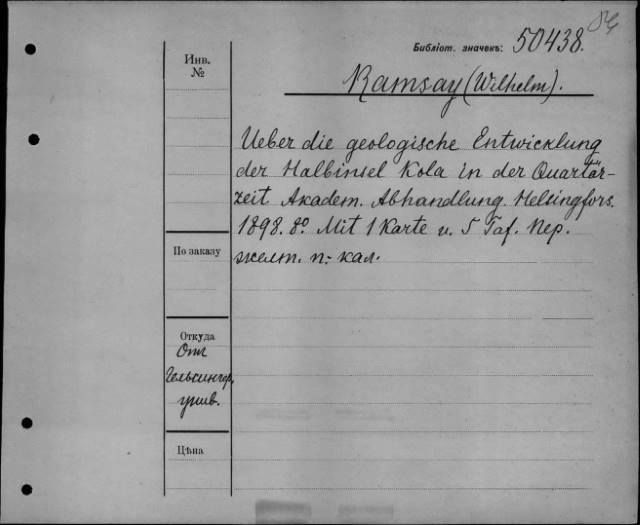 Библіот. значекъ: 50438.
Инв.
№
Ramsay (Wilhelm).
Ueber die geologische Entwicklung
der Halbinsel Kola in der Quartär-
zeit Akadem. Abhandlung. Helsingfors.
1898. 8º. Mit 1 Karte u. 5 Taf. Пер.
желт. п.-кал.
По заказу
Откуда
Отъ
Гельсингфор.
унив.
Цѣна